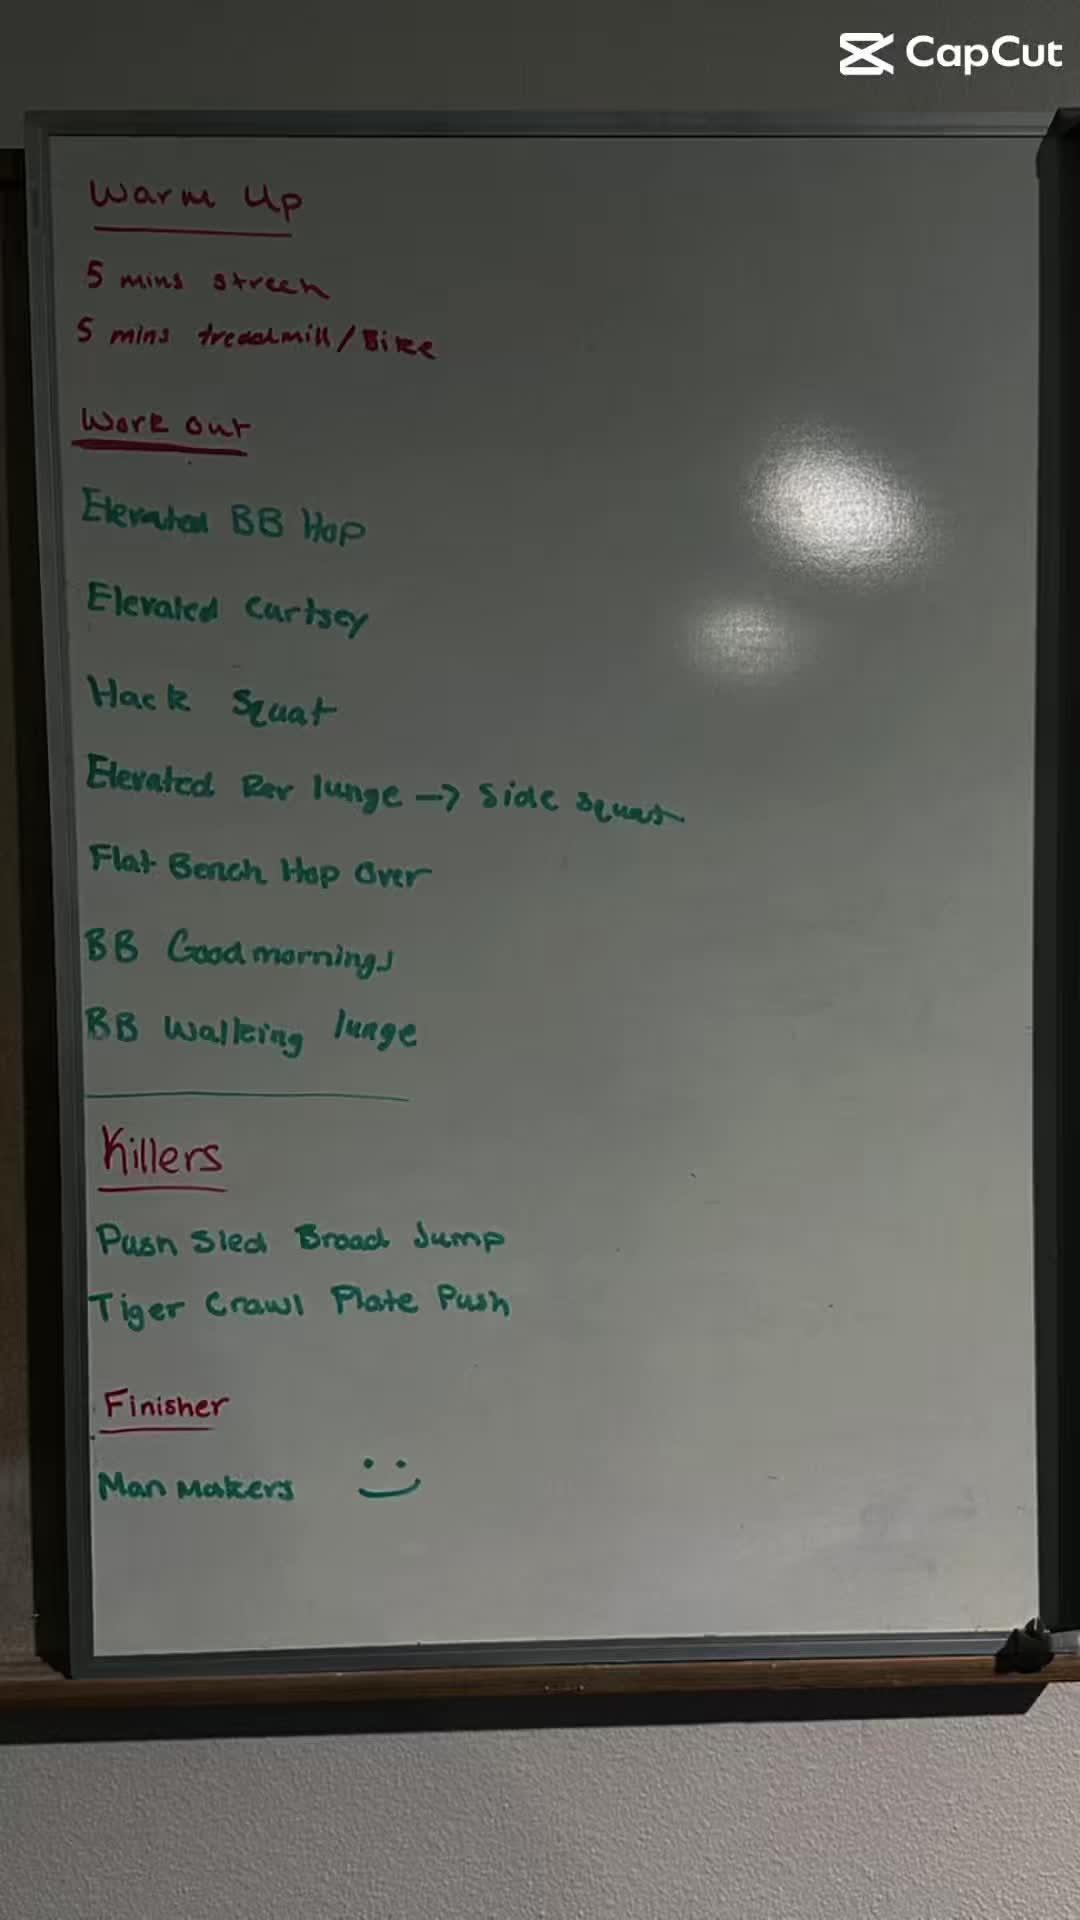 CapCut
Warm Up
5 mins strech
5 mins treadmill/Bike
Work out
Elevated BB Hop
Elevated Curtsey
Hack Squat
Elevated Rev lunge -> Side squat
Flat Bench Hop Over
BB Goodmornings
BB Walking lunge
Killers
Push Sled Broad Jump
Tiger Crawl Plate Push
Finisher
Man Makers